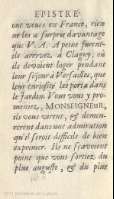 EPISTRE.
ont veuës en France, rien
ne les a surpris davantage
que V. A. A peine furent-
ils arrivez à Clagny, où
ils devoient loger pendant
leur sejour à Versailles, que
leur curiosité les porta dans
le Jardin. Vous vous y pro-
meniez, MONSEIGNEUR,
ils vous virent, & demeu-
rerent dans une admiration
qu'il seroit difficile de bien
exprimer. Ils ne sçavoient
point que vous sortiez du
plus auguste, & du plus